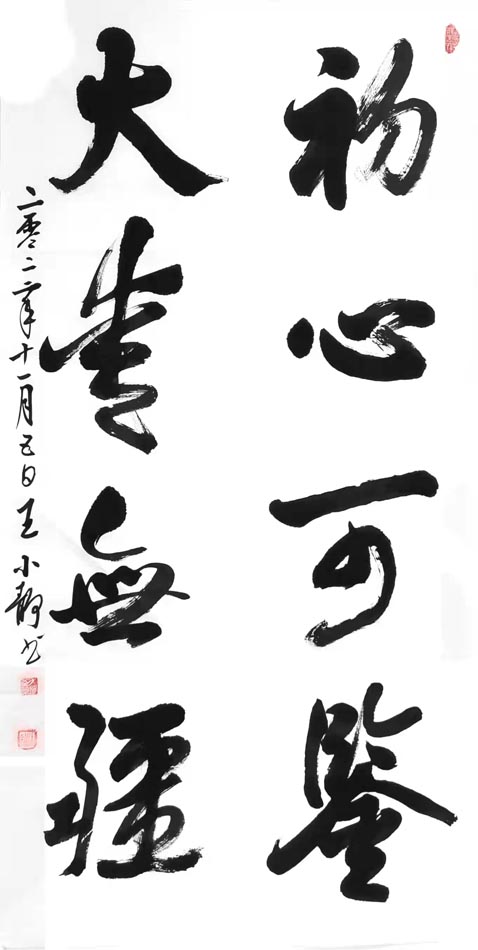 初心可鑒
大愛無疆
二零二二年十一月五日王小靜书